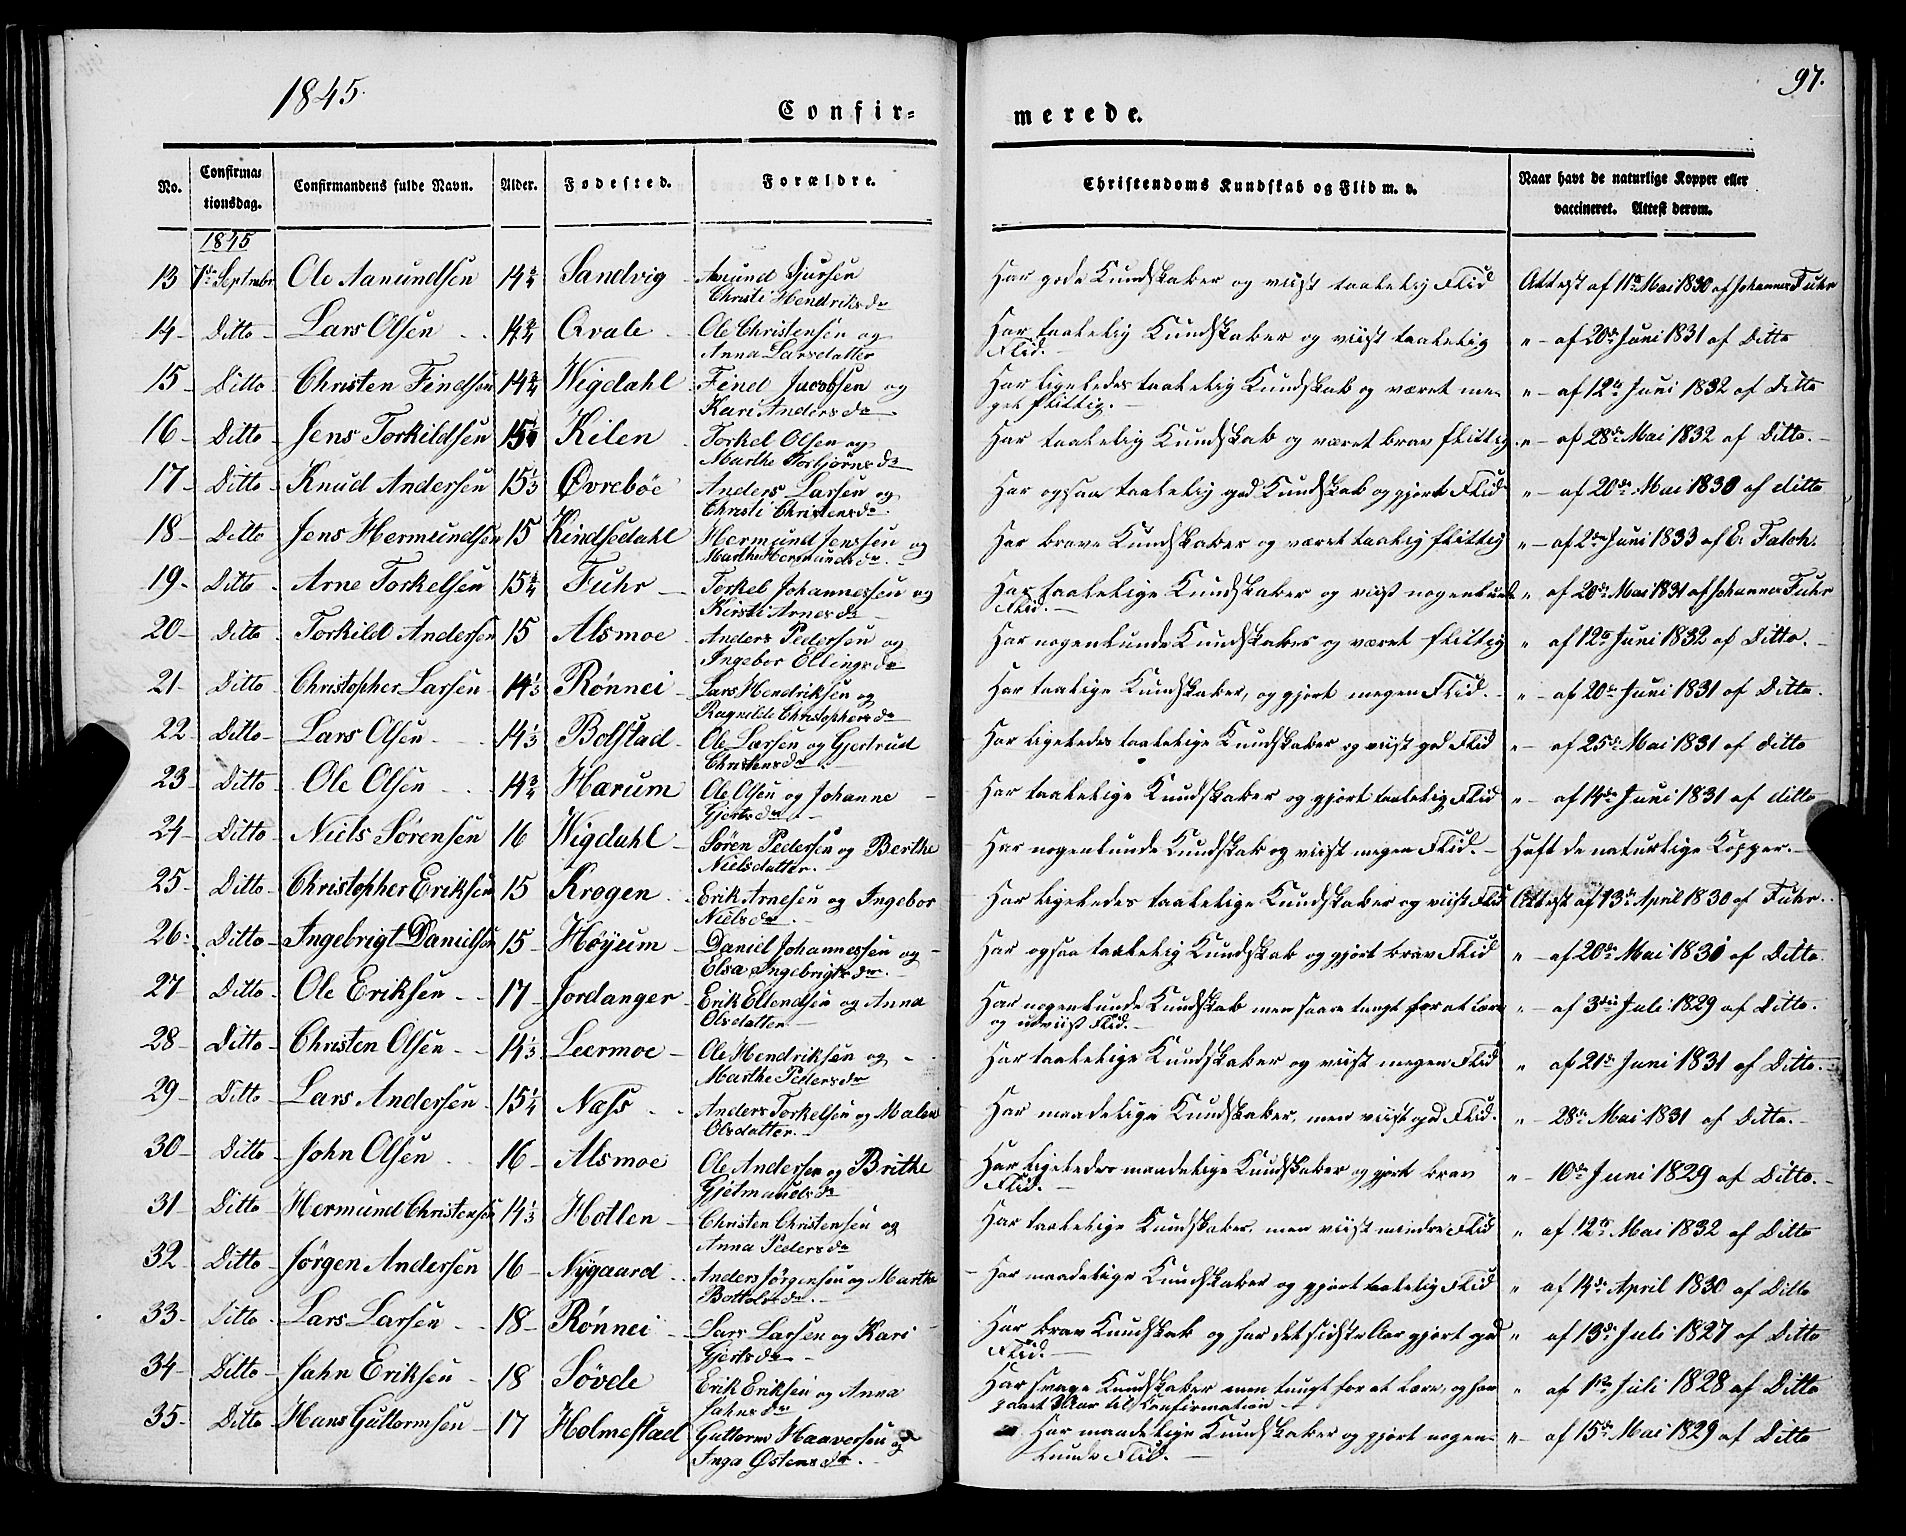 1845.
97.
Confir=
merede.
No.
Confirma=
tionsdag.
Confirmandens fulde Navn.
Alder.
Fødested.
Forældre.
Christendoms Kundskab og Flid m. v.
Naar havt de naturlige Kopper eller
vaccineret. Attest derom.
1845
13 7de Septembr Ole Aamundsen 14 3/4 Sandvig Amund Sjursen Har gode Kundskaber og viist taalelig Flid Attest af 11te Mai 1830 af Johannes Fuhr
Christi Hendriksdr
14 - Ditto - Lars Olsen - 14 3/4 Qvale - Ole Christensen og Har taalelig Kundskaber og viist taalelig „ - af 20de Juni 1831 af Ditto
Anna Larsdatter Flid. -
15 - Ditto - Christen Findsen 14 3/4 Wigdahl Find Jacobsen og Har ligeledes taalelig Kundskab og været me- „ - af 12te Juni 1832 af Ditto
Kari Andersdr get flittig. -
16 - Ditto - Jens Torkildsen 15 Kilen Torkel Olsen og Har taalelig Kundskab og været brav flittig „ - af 28de Mai 1832 af Ditto. -
Marthe Torbjørnsdr
17 - Ditto - Knud Andersen 15 1/3 Øvrebøe Anders Larsen og Har ogsaa taalelig god Kundskab og gjort Flid „ - af 20de Mai 1830 af ditto
Christi Christensdr.
18 - Ditto Jens Hermundsen 15 Kindsedahl Hermund Jenssen og Har brave Kundskaber og været taalig flittig „ - af 2den Juni 1833 af E. Faloh.
Marthe Hermundsdr.
19 - Ditto - Arne Torkelsen 15 3/4 Fuhr - Torkel Johannessen og Har taalelige Kundskaber og viist nogenlunde „ af 20de Mai 1831 af Johannes Fuhr
Kirsti Arnesdr Flid. -
20 - Ditto Torkild Andersen 15 Alsmoe - Anders Pedersen og Har nogenlunde Kundskaber og været flittig „ af 12te Juni 1832 af Ditto. -
Ingebor Ellingsdr
21 - Ditto Christopher Larsen 14 1/3 Rønnei - Lars Hendriksen og Har taalige Kundskaber, og gjort megen Flid. - „ - af 20de Juni 1831 af Ditto.
Ragnilde Christophersdr
22 - Ditto - Lars Olsen - 14 1/3 Bolstad - Ole Larsen og Gjertrud Har ligeledes taalelige Kundskaber og viist god Flid „ - af 25de Mai 1831 af ditto
Christensdr
23 - Ditto - Ole Olsen - 14 3/4 Harum Ole Olsen og Johanne Har taalelige Kundskaber og gjort taalelig Flid „ - af 14de Juni 1831 af ditto
Gjertsdr -
24 - Ditto - Niels Sørensen 16 Wigdahl - Søren Pedersen og Berthe Har nogenlunde Kundskab og viist megen Flid. - Haft de naturlige Kopper. -
Nielsdatter. -
25 - Ditto - Christopher Eriksen 15 Krogen - Erik Arnesen og Ingebor Har ligeledes taalelige Kundskaber og viist Flid Attest af 13de April 1830 af Fuhr.
Nielsdr -
26 - Ditto - Ingebrigt Danielsen 15 - Høyum - Daniel Johannessen og - Har ogsaa taalelig Kundskab og gjort brav Flid „ - af 20de Mai 1830 af Ditto.
Elsa Ingebrigtsdr. -
27 - Ditto - Ole Eriksen - - 17 - Jordanger - Erik Ellendsen og Anna Har nogenlunde Kundskab men saare tungt for at lære „ - af 3die Juli 1829 af Ditto.
Olsdatter - og udviist Flid. -
28 - Ditto - Christen Olsen - - 14 1/3 Leermoe - Ole Hendriksen og - Har taalelige Kundskaber og viist megen Flid „ af 21de Juni 1831 af Ditto. -
Marthe Pedersdr
29 - Ditto - Lars Andersen 15 1/4 Næss - Anders Torkelsen og Malene Har maadelige Kundskaber, men viist god Flid. „ - 28de Mai 1831 af Ditto. -
Olsdatter. -
30 - Ditto - John Olsen 16 - Alsmoe Ole Andersen og Brithe Har ligeledes maadelige Kundskaber og gjort brav „ - 10de Juni 1829 af Ditto. -
Gjetmundsdr Flid. -
31 - Ditto - Hermund Christensen 14 1/3 - Hotlen - Christen Christensen og Har taalelige Kundskaber, men viist mindre Flid „ af 12te Mai 1832 af Ditto
Anna Pedersdr
32 - Ditto - Jørgen Andersen 16 - Nygaard - Anders Jørgensen og Marthe - Har maadelige Kundskaber og gjort taalelig Flid „ af 14de April 1830 af Ditto
Bottolsdr. -
33 - Ditto - Lars Larsen - - 18 - Rønnei - Lars Larsen og Kari - Har brav Kundskab og har det sidste Aar gjort god „ af 13de Juli 1827 af Ditto
Gjertsdr - Flid. -
34 - Ditto - Jahn Eriksen - 18 Søvde Erik Eriksen og Anna Har svage Kundskaber men tungt for at lære, og har „ af 1ste Juli 1828 af Ditto
Jahnsdr gaaet 3 Aar til Confirmation -
35 - Ditto - Hans Guttormsen - 17 Holmestad Guttorm Haaversen og Har maadelige Kundskaber og gjort nogen- „ - af 15de Mai 1829 af Ditto
Inga Østensdr. - lunde Flid. -